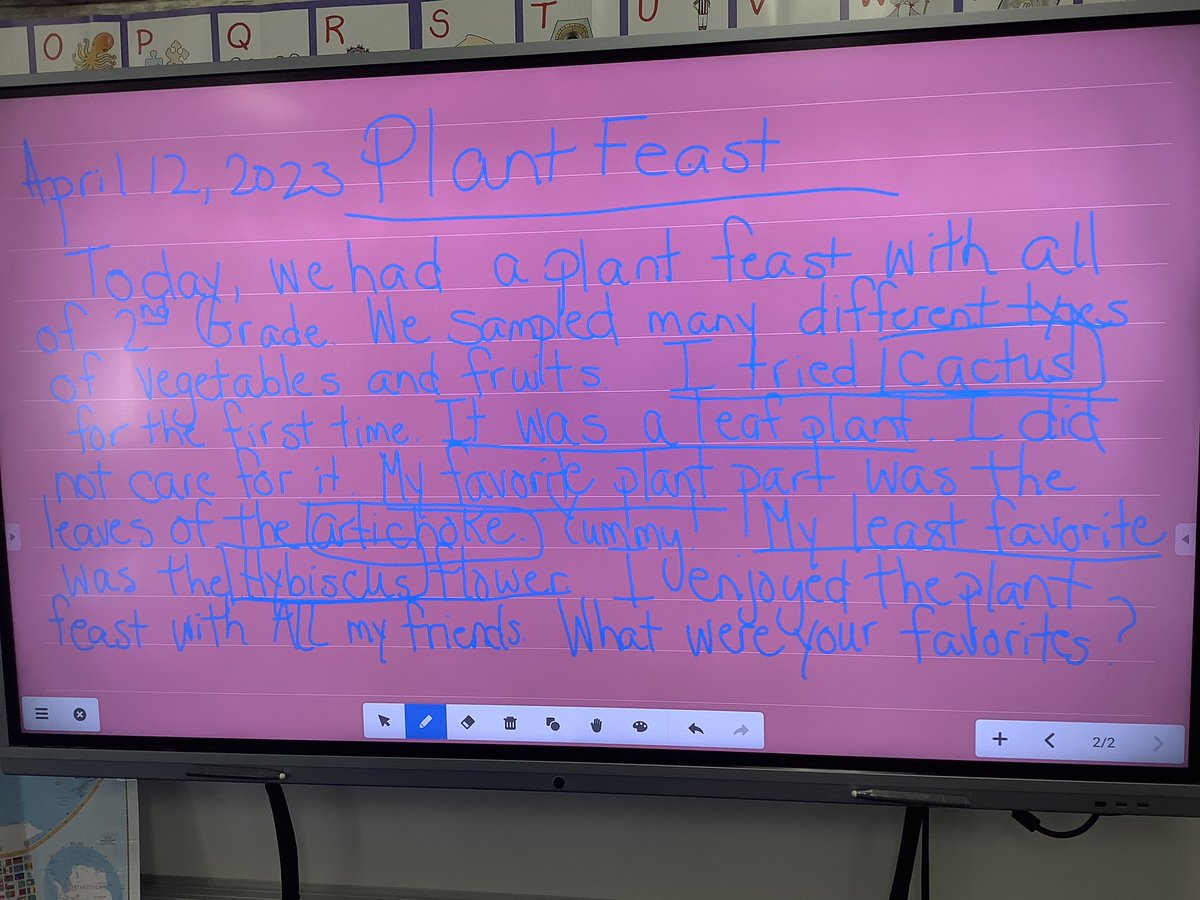 O P Q R S T U V
April 12, 2023 Plant Feast
Today, we had a plant feast with all
of 2nd Grade. We sampled many different types
of vegetables and fruits. I tried Cactus
for the first time. It was a leaf plant. I did
not care for it. My favorite plant part was the
leaves of the artichoke. Yummy! My least favorite
was the Hybiscus flower. I enjoyed the plant
feast with All my friends. What were your favorites?
2/2